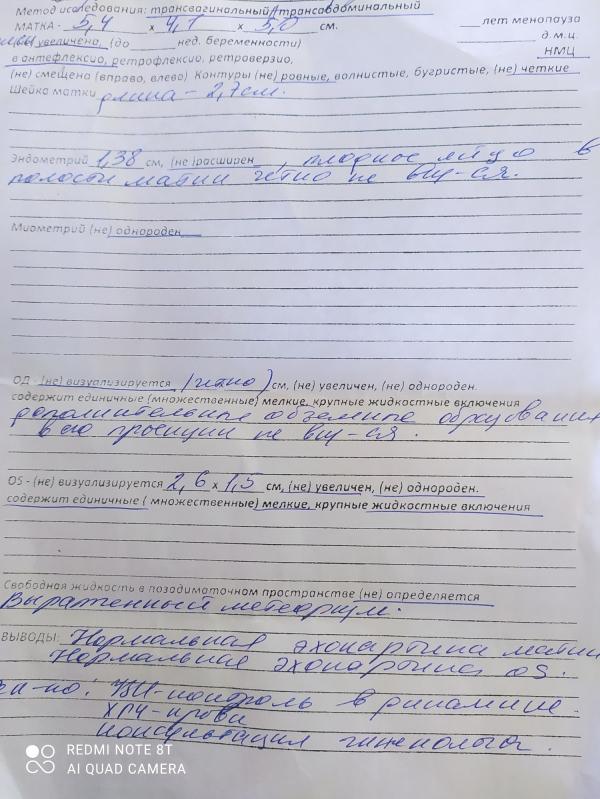 Метод исследования: трансвагинальный/трансабдоминальный
МАТКА - 5,4 х 4,7 х 5,0 см. лет менопауза
увеличена, (до нед. беременности) д.м.ц.
в антефлексио, ретрофлексио, ретроверзио, НМЦ
(не) смещена (вправо, влево) Контуры (не) ровные, волнистые, бугристые, (не) четкие
Шейка матки длина - 2,7 см.
Эндометрий 1,38 см, (не) расширен, плодное яйцо в
полости матки четко не виу-ся.
Миометрий (не) однороден
ОД - (не) визуализируется (четко) см, (не) увеличен, (не) однороден.
содержит единичные (множественные) мелкие, крупные жидкостные включения
дополнительные объемные образования
в его проекции не виу-ся.
OS - (не) визуализируется 2,6 х 1,5 см, (не) увеличен, (не) однороден.
содержит единичные ( множественные) мелкие, крупные жидкостные включения
Свободная жидкость в позадиматочном пространстве (не) определяется
Выраженный метеоризм.
ВЫВОДЫ: Нормальная эхокартина матки
Нормальная эхокартина OS.
УЗИ-контроль в динамике.
ХГЧ-крови
консультация гинеколога.
REDMI NOTE 8T
AI QUAD CAMERA